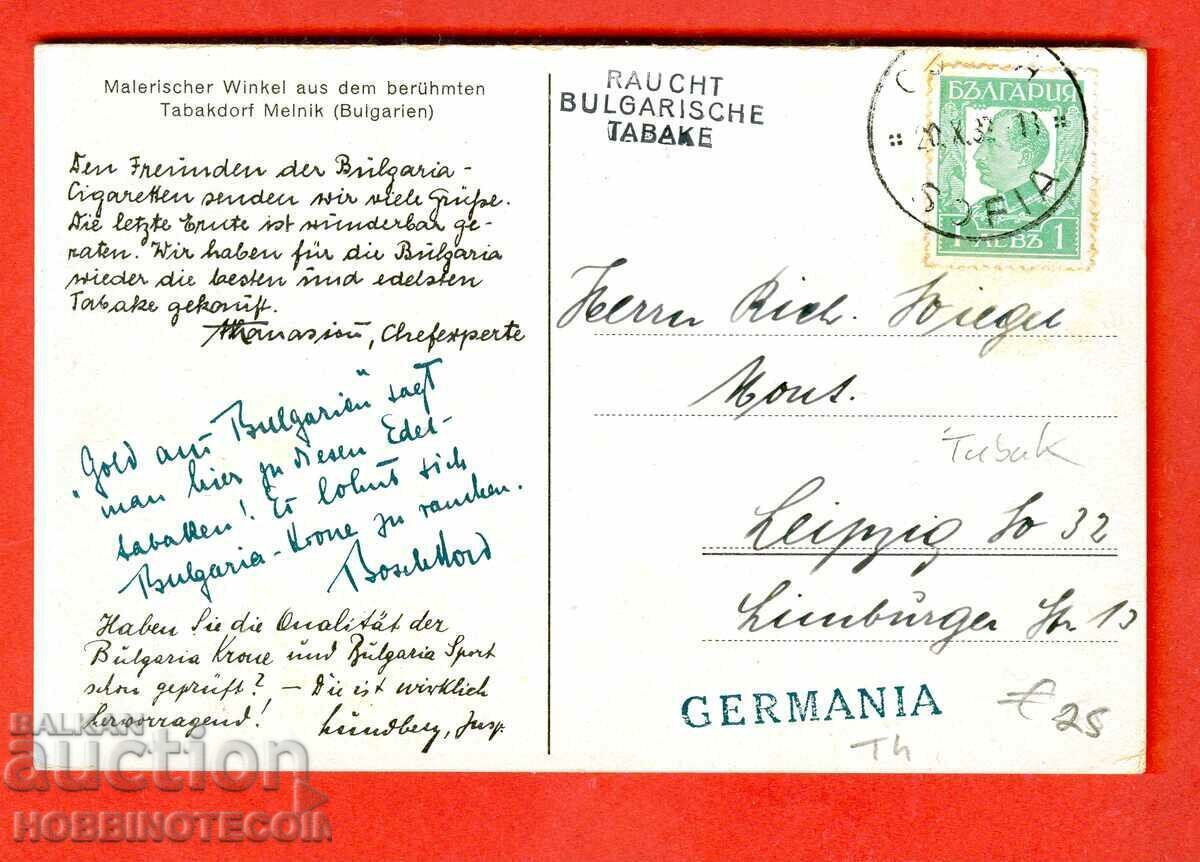 Malerischer Winkel aus dem berühmten
Tabakdorf Melnik (Bulgarien)
Den Freunden der Bulgaria-
Cigaretten senden wir viele Grüße.
Die letzte Ernte ist wunderbar ge-
raten. Wir haben für die Bulgaria
wieder die besten und edelsten
Tabake gekauft.
Athanasiou, Chefexperte
"Gold aus Bulgarien" sagt
man hier zu diesen Edel-
tabaken! Es lohnt sich
Bulgaria-Krone zu rauchen.
Haben Sie die Qualität der
Bulgaria Krone und Bulgaria Sport
schon geprüft? – Die ist wirklich
hervorragend!
Lundberg, Insp.
RAUCHT
BULGARISCHE
TABAKE
SOFIA
БЪЛГАРИЯ
1 ЛЕВЪ 1
Herrn Rich.
Mont.
Tabak
Leipzig So 32
Limburger Str 13
GERMANIA
€ 25
Th
BALKAN
auction
HOBBINOTECOIN